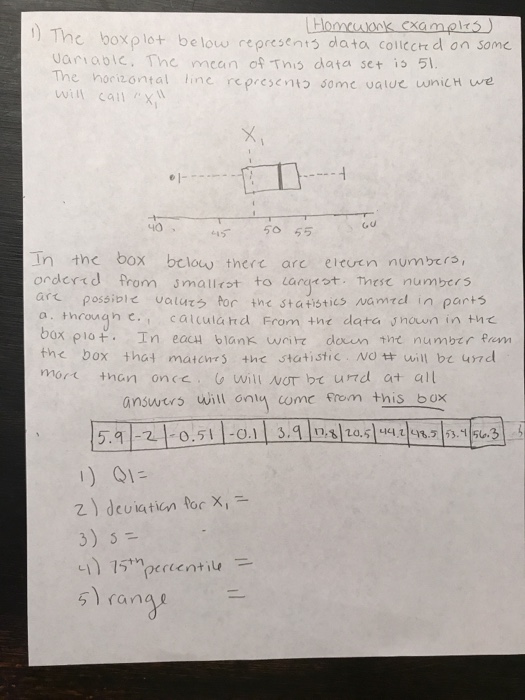 (Homework examples)
1) The boxplot below represents data collected on some
variable. The mean of this data set is 51.
The horizontal line represents some value which we
will call "X₁"
X₁
40 45 50 55 60
In the box below there are eleven numbers,
ordered from smallest to largest. These numbers
are possible values for the statistics named in parts
a. through e., calculated from the data shown in the
box plot. In each blank write down the number from
the box that matches the statistic. NO # will be used
more than once. 6 will NOT be used at all
answers will only come from this box
5.9 -2 -0.51 -0.1 3.9 17.8 20.5 44.2 48.5 53.4 56.3
1) Q1=
2) deviation for X₁ =
3) s =
4) 75th percentile =
5) range =